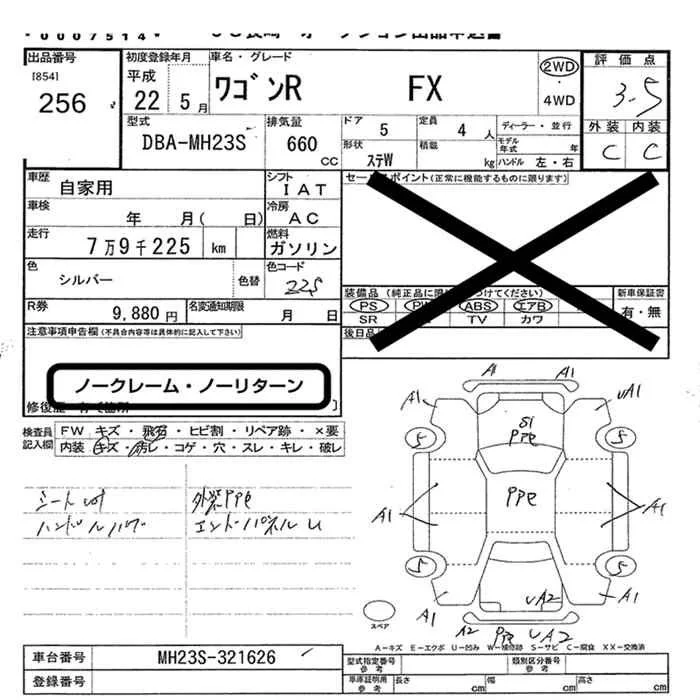 出品番号
[854]
256
初度登録年月
平成
22 5月
車名・グレード
ワゴンR FX
2WD
・
4WD
評価点
3.5
外装 内装
C C
型式
DBA-MH23S
排気量
660
CC
ドア
5
定員
4人
ディーラー・並行
モデル年式 年
形状
ステW
積載
kg
ハンドル 左・右
車歴
自家用
シフト
IAT
セールスポイント(正常に機能するものに限ります)
車検
年 月( 日)
冷房
AC
走行
7万9千225 km
燃料
ガソリン
色
シルバー
色替
色コード
22S
装備品 (純正品に限り つけてください)
PS PW ABS エアB
SR TV カワ
新車保証書
有・無
R券
9,880円
名変通知期限
月 日
後日品
注意事項申告欄(不具合内容等は具体的に記入して下さい)
ノークレーム・ノーリターン
検査員
記入欄
FW キズ・飛石・ヒビ割・リペア跡・×要
内装 キズ・汚レ・コゲ・穴・スレ・キレ・破レ
A1 A1
A1 UA1
S1
PPe
5 5
PPe
A1 A1
5 5
UA2
A1 A1
A2 PPe UA2
スペア
A-キズ E-エクボ U-凹み W-補修跡 S-サビ C-腐食 XX-交換済
車台番号
MH23S-321626
登録番号
型式指定番号
参考
類別区分番号
参考
車庫証明用
参考
長さ cm
幅 cm
高さ cm